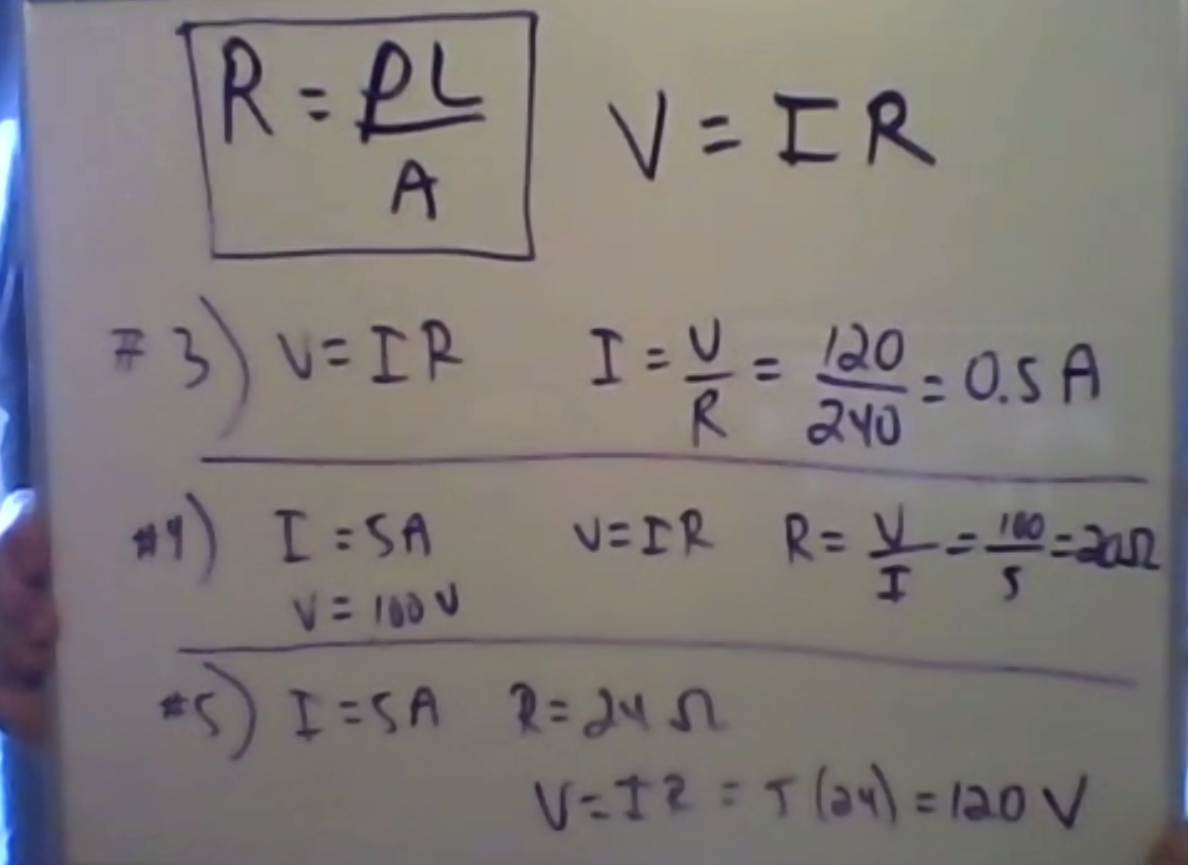 R = ρL/A
V = IR
#3) V = IR I = V/R = 120/240 = 0.5 A
#4) I = 5A V = IR R = V/I = 100/5 = 20Ω
V = 100 V
#5) I = 5A R = 24 Ω
V = IR = 5 (24) = 120 V